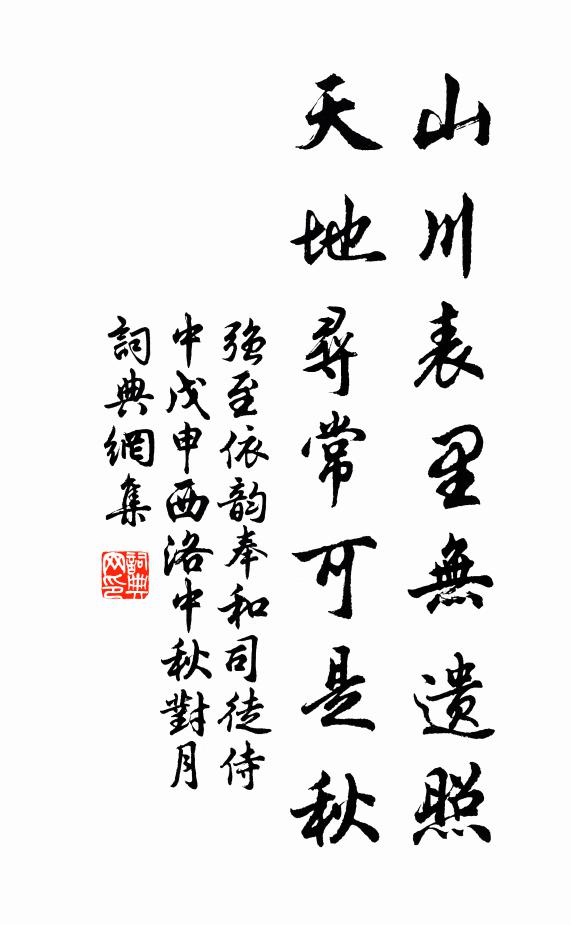 山川表里無遺照
天地尋常可是秋
強至依韵奉和司徒侍
中戊申西洛中秋對月
詞典網集
詞典网印